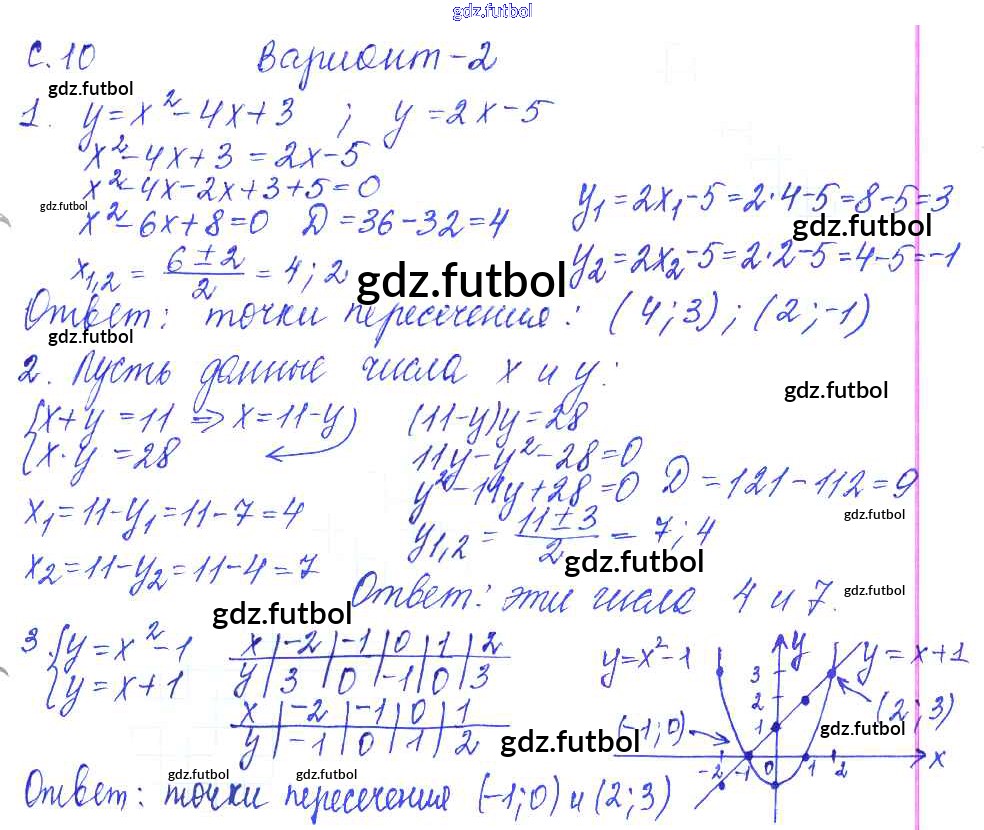 gdz.futbol
С.10 Вариант-2
gdz.futbol
1. y=x²-4x+3 ; y=2x-5
x²-4x+3=2x-5
x²-4x-2x+3+5=0
gdz.futbol
x²-6x+8=0 D=36-32=4
y₁=2x₁-5=2·4-5=8-5=3
gdz.futbol
x₁,₂ = (6±2)/2 = 4; 2
y₂=2x₂-5=2·2-5=4-5=-1
gdz.futbol
Ответ: точки пересечения: (4;3); (2;-1)
gdz.futbol
2. Пусть данные числа x и y:
gdz.futbol
{x+y=11 => x=11-y
{x·y=28
(11-y)y=28
11y-y²-28=0
y²-11y+28=0 D=121-112=9
gdz.futbol
y₁,₂ = (11±3)/2 = 7; 4
gdz.futbol
x₁=11-y₁=11-7=4
x₂=11-y₂=11-4=7
Ответ: эти числа 4 и 7.
gdz.futbol
gdz.futbol
3. {y=x²-1
{y=x+1
x | -2 | -1 | 0 | 1 | 2
y | 3 | 0 | -1 | 0 | 3
x | -2 | -1 | 0 | 1
y | -1 | 0 | 1 | 2
gdz.futbol
y=x²-1
y
y=x+1
3
2
1
(2;3)
(-1;0)
gdz.futbol
-2 -1 0 1 2 x
gdz.futbol gdz.futbol
Ответ: точки пересечения (-1;0) и (2;3)